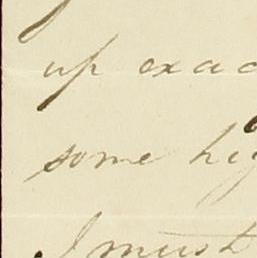 up exac
some hig
I must